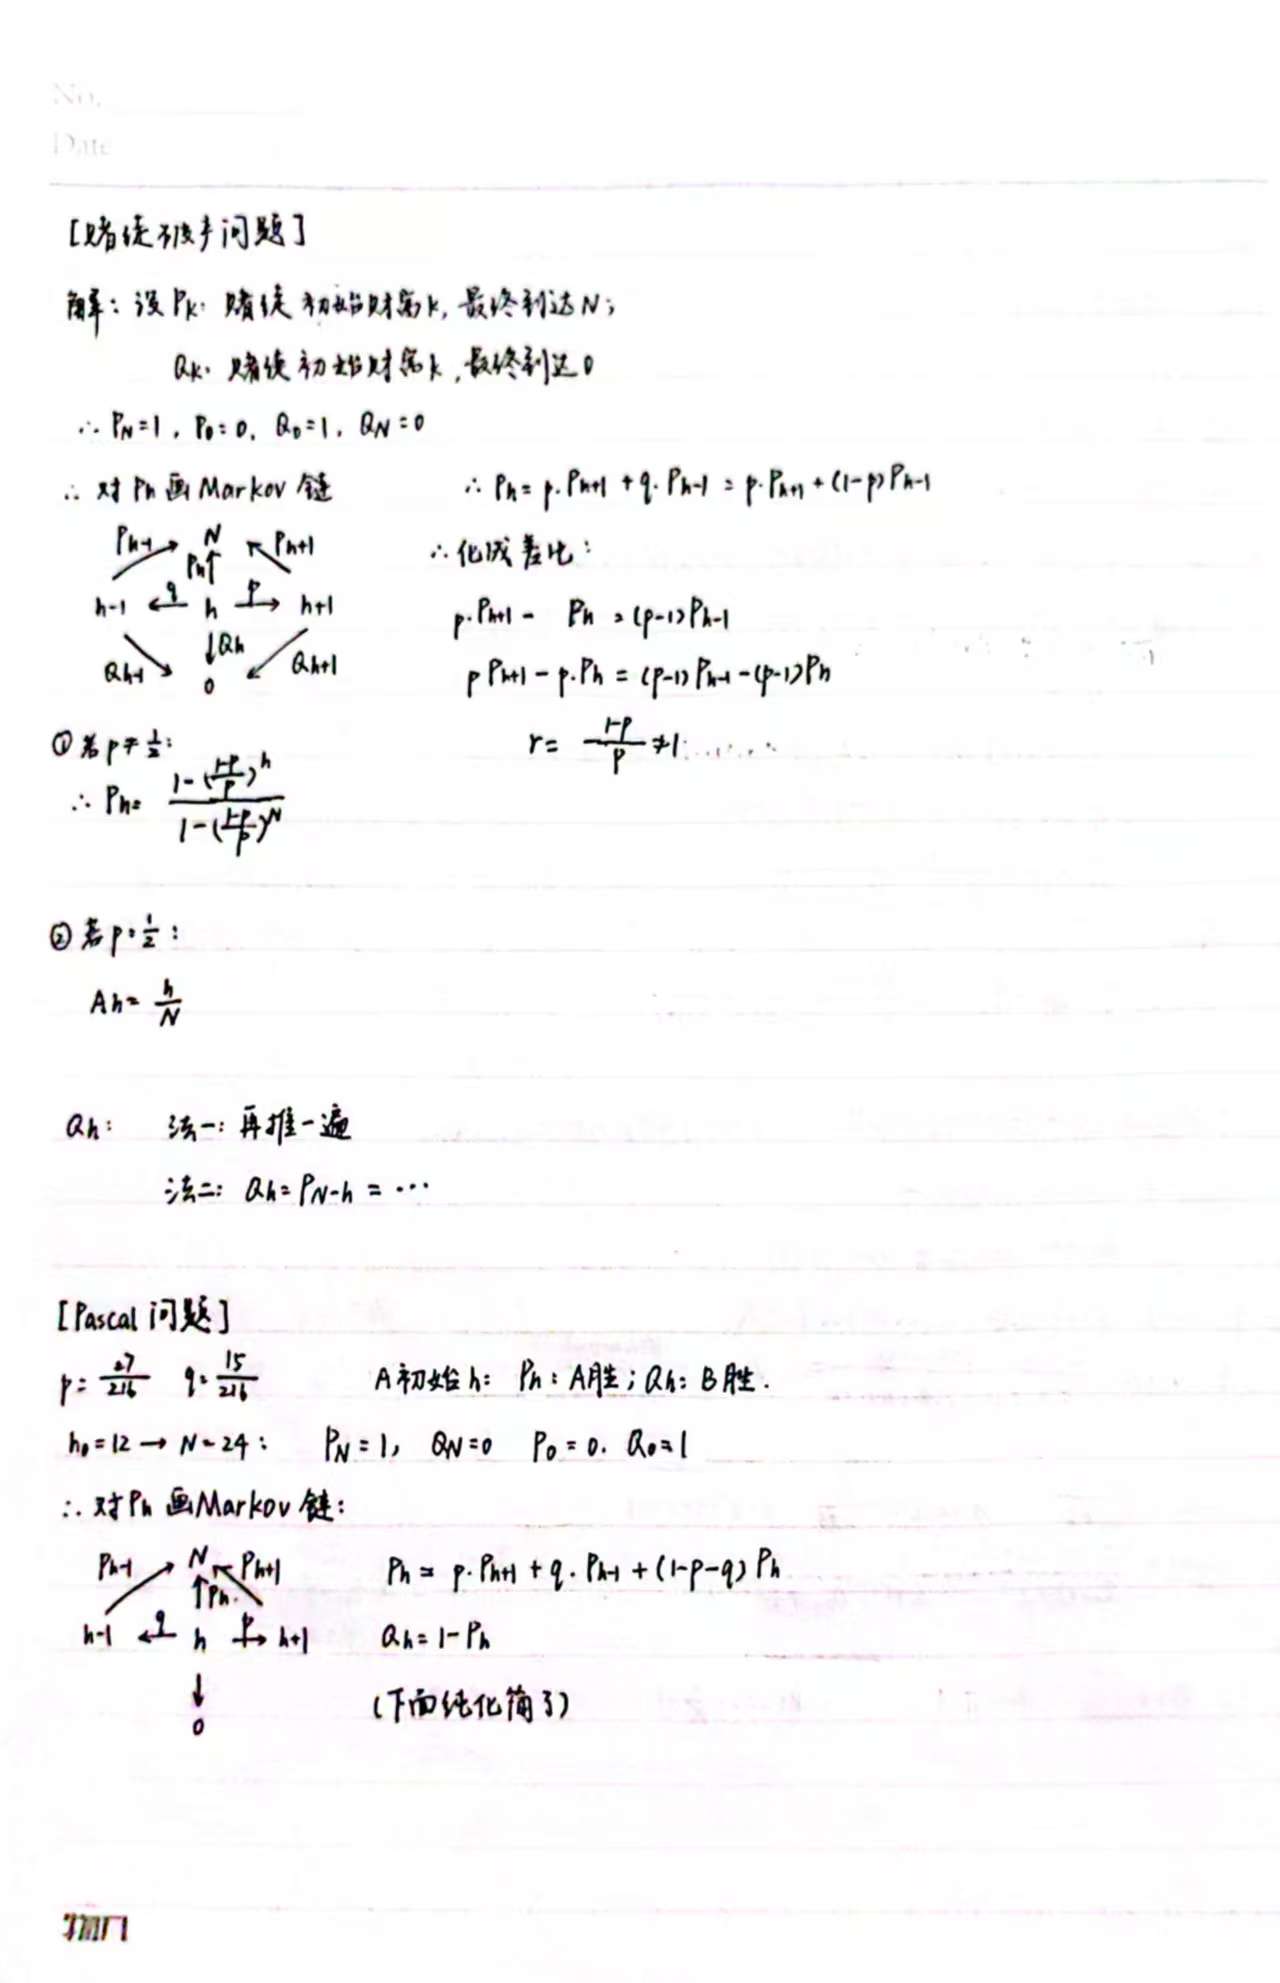 No.
Date
[赌徒破产问题]
解：设 Pk：赌徒初始财富k, 最终到达N；
Qk：赌徒初始财富k, 最终到达0
∴ PN=1, P0=0, Q0=1, QN=0
∴ 对 Ph 画 Markov 链
∴ Ph = p·Ph+1 + q·Ph-1 = p·Ph+1 + (1-p)Ph-1
Ph-1 N Ph+1
Ph
h-1 q h p h+1
Qh
Qh-1 0 Qh+1
∴ 化成差比：
p·Ph+1 - Ph = (p-1)Ph-1
p Ph+1 - p·Ph = (p-1)Ph-1 - (p-1)Ph
r = (1-p)/p ≠ 1
① 若 p ≠ 1/2：
∴ Ph = (1-((1-p)/p)^h)/(1-((1-p)/p)^N)
② 若 p = 1/2：
Ah = h/N
Qh： 法一：再推一遍
法二：Qh = PN-h = …
[Pascal 问题]
p = 27/216 q = 15/216 A初始h：Ph：A胜；Qh：B胜.
h0=12 → N=24： PN=1, QN=0 P0=0. Q0=1
∴ 对 Ph 画 Markov 链：
Ph-1 N Ph+1
Ph
h-1 q h p h+1
0
Ph = p·Ph+1 + q·Ph-1 + (1-p-q)Ph
Qh = 1-Ph
(下面纯化简了)